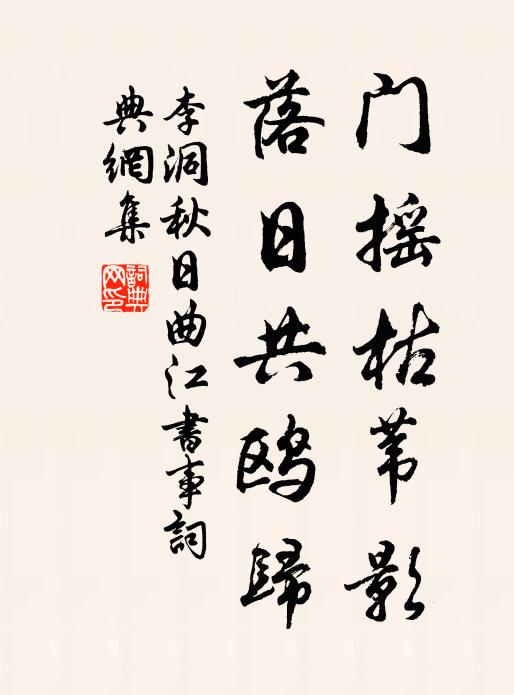 门摇枯苇影
落日共鸥歸
李洞秋日曲江書事詞
典網集
詞典
网印